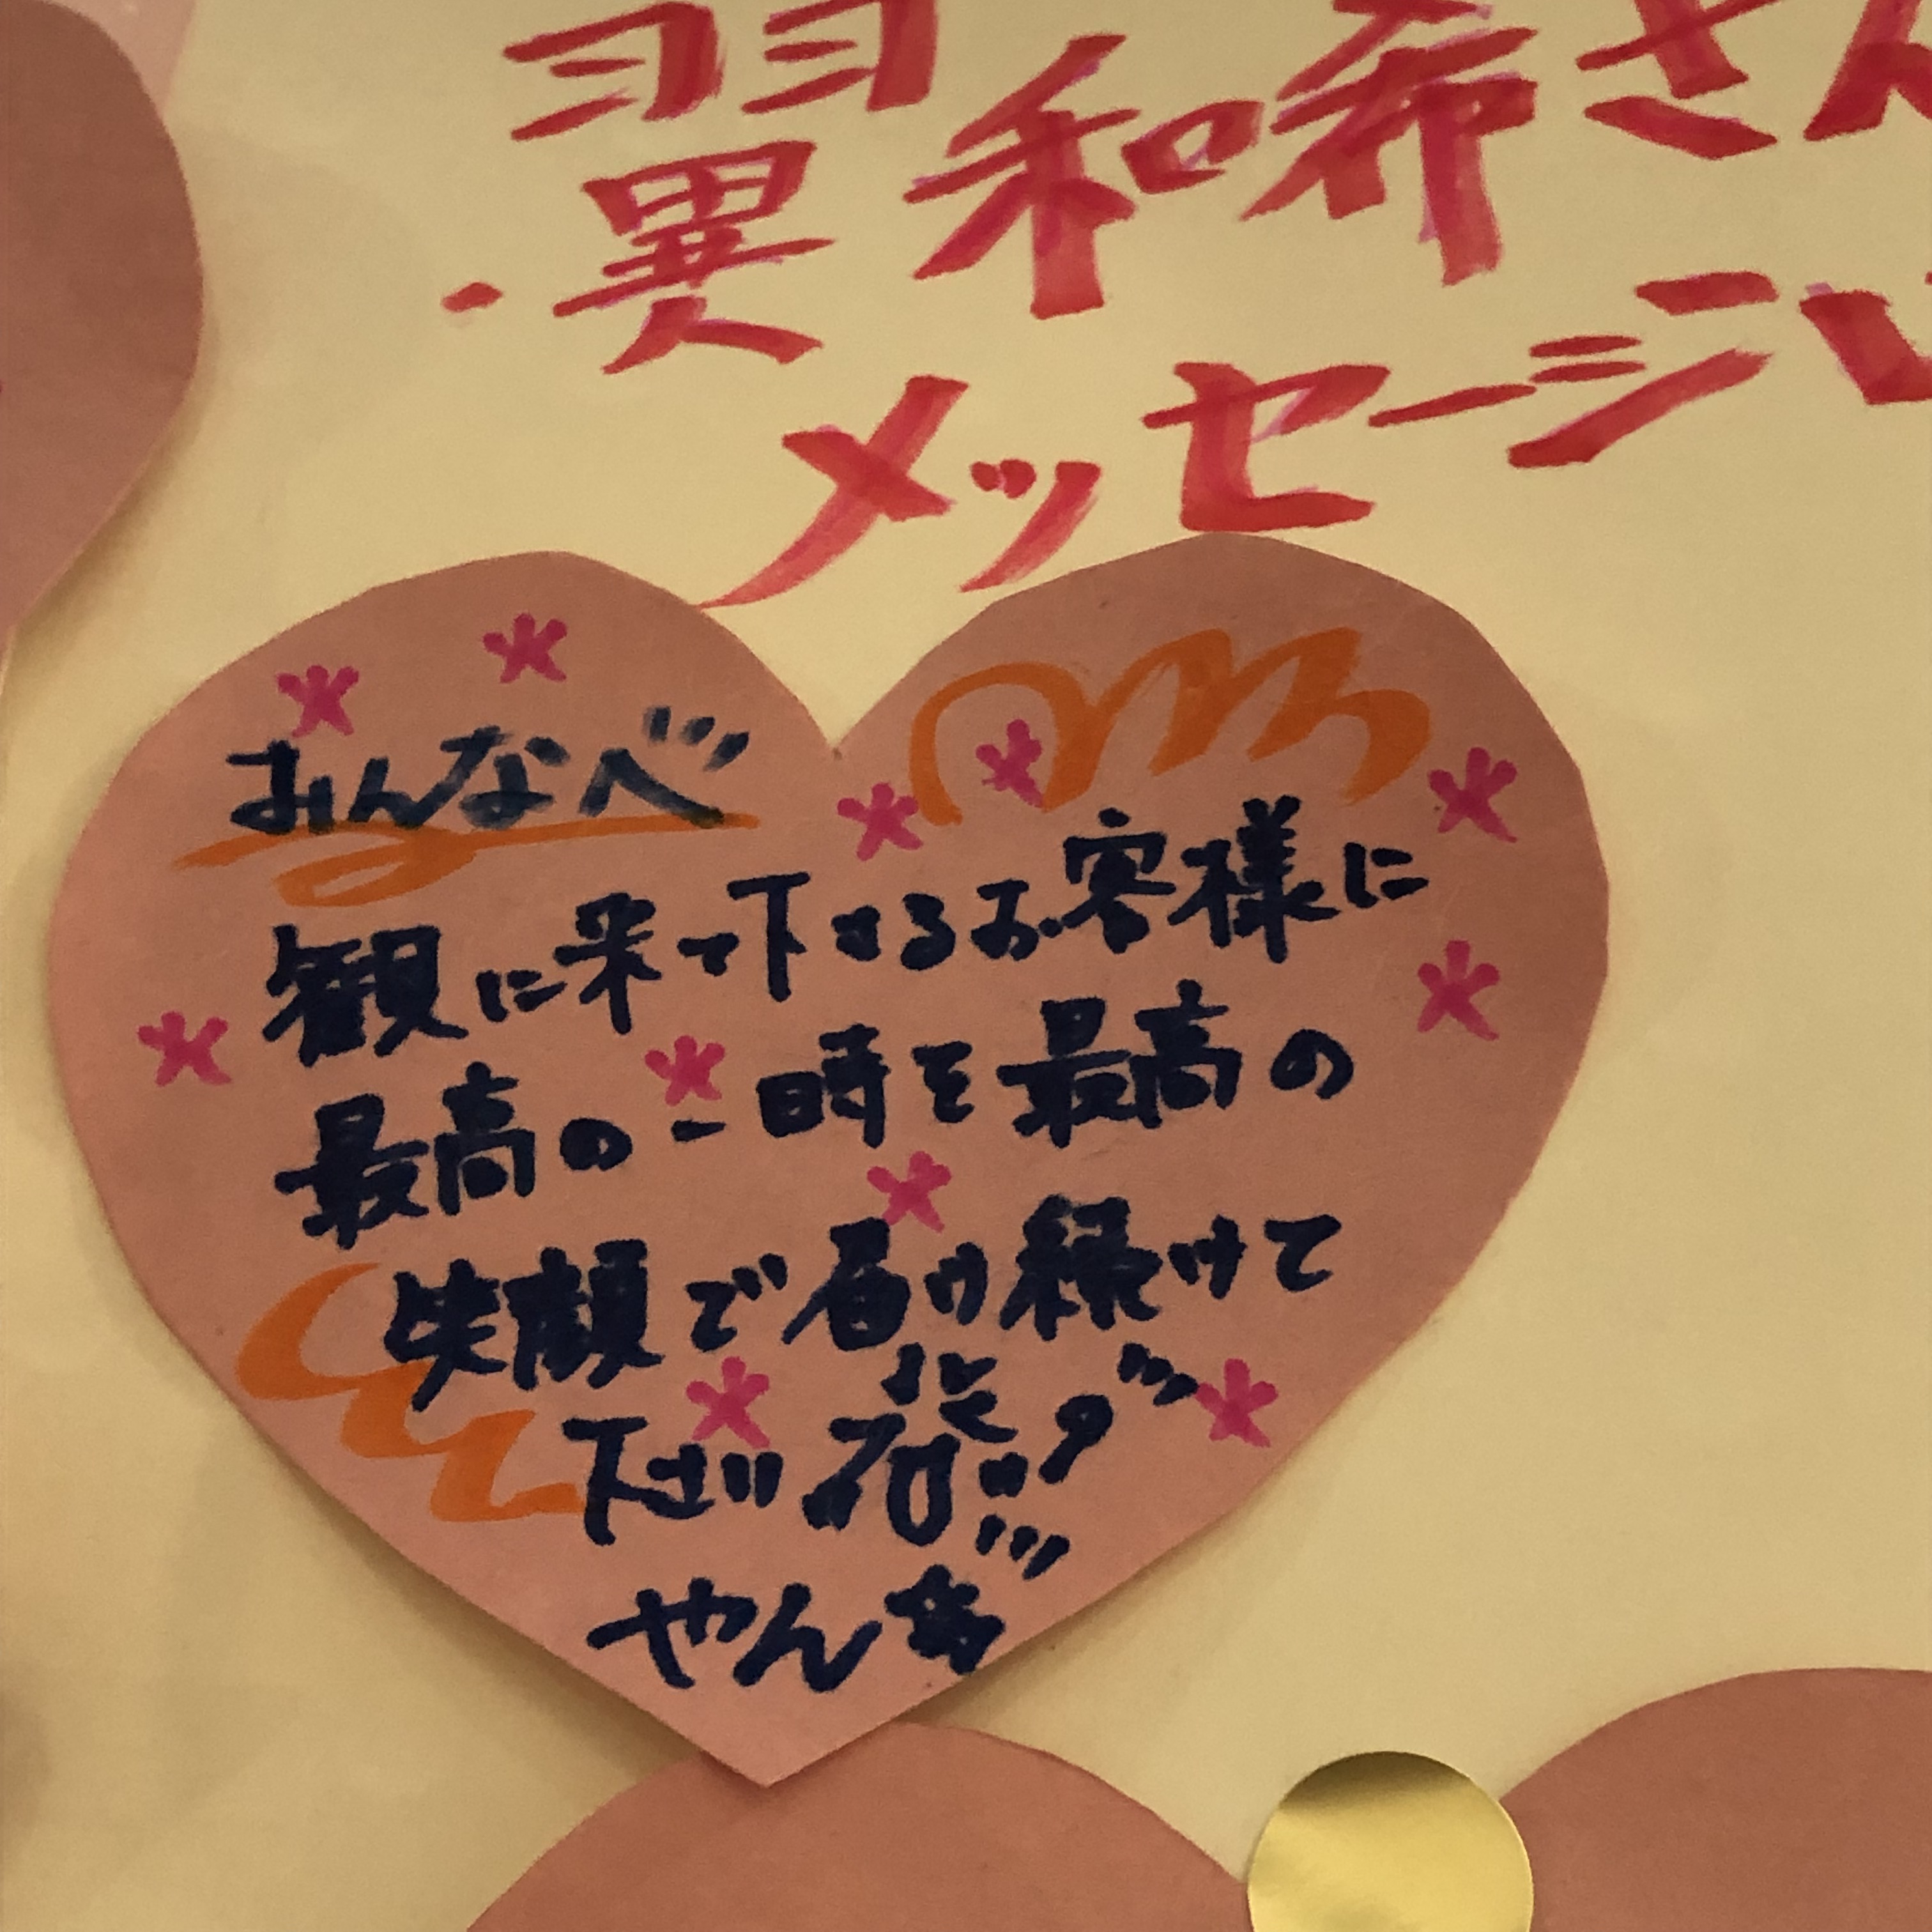 翼和希さん
メッセージ
みんなべ
観に来て下さるお客様に
最高の一時を最高の
笑顔で届け続けて
下さい
やん